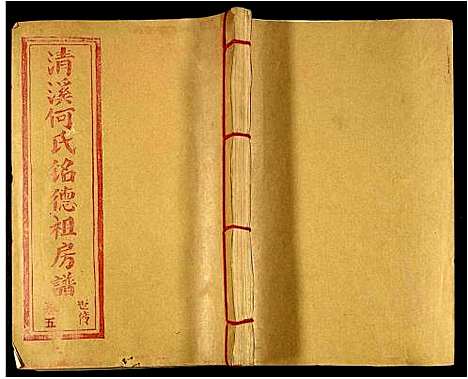 清溪何氏銘德祖房譜
卷五
世傳